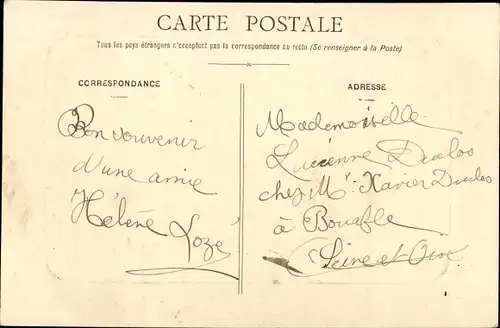 CARTE POSTALE
Tous les pays étrangers n'acceptent pas la correspondance au recto (Se renseigner à la Poste)
CORRESPONDANCE
Bon souvenir
d'une amie
Hélène Lozé
ADRESSE
Mademoiselle
Lucienne Duclos
chez Mr Xavier Duclos
à Bouafle
Seine et Oise